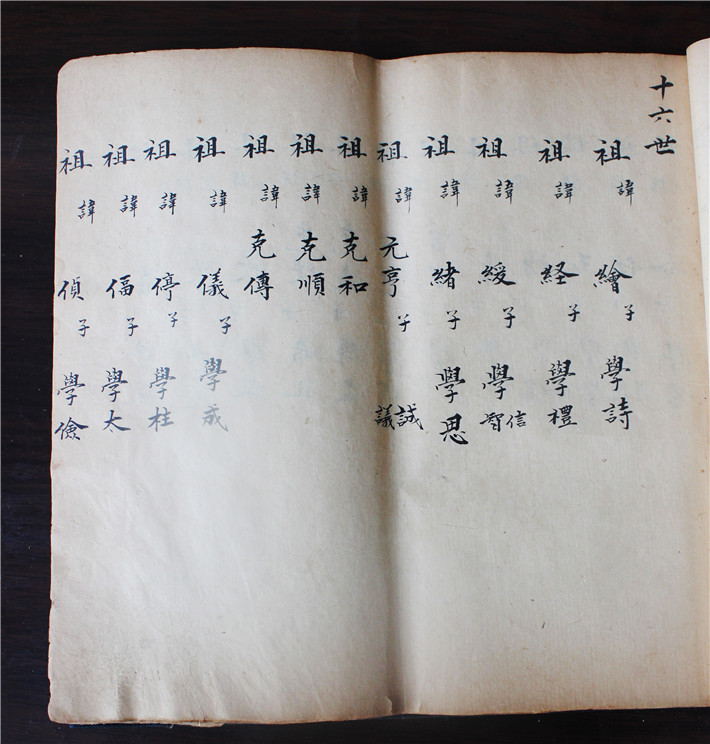 十六世
祖諱繪子學詩
祖諱経子學禮
祖諱綬子學信智
祖諱緒子學思
祖諱元亨子誠議
祖諱克和
祖諱克順
祖諱克傳
祖諱儀子學成
祖諱停子學柱
祖諱偪子學太
祖諱偵子學儉